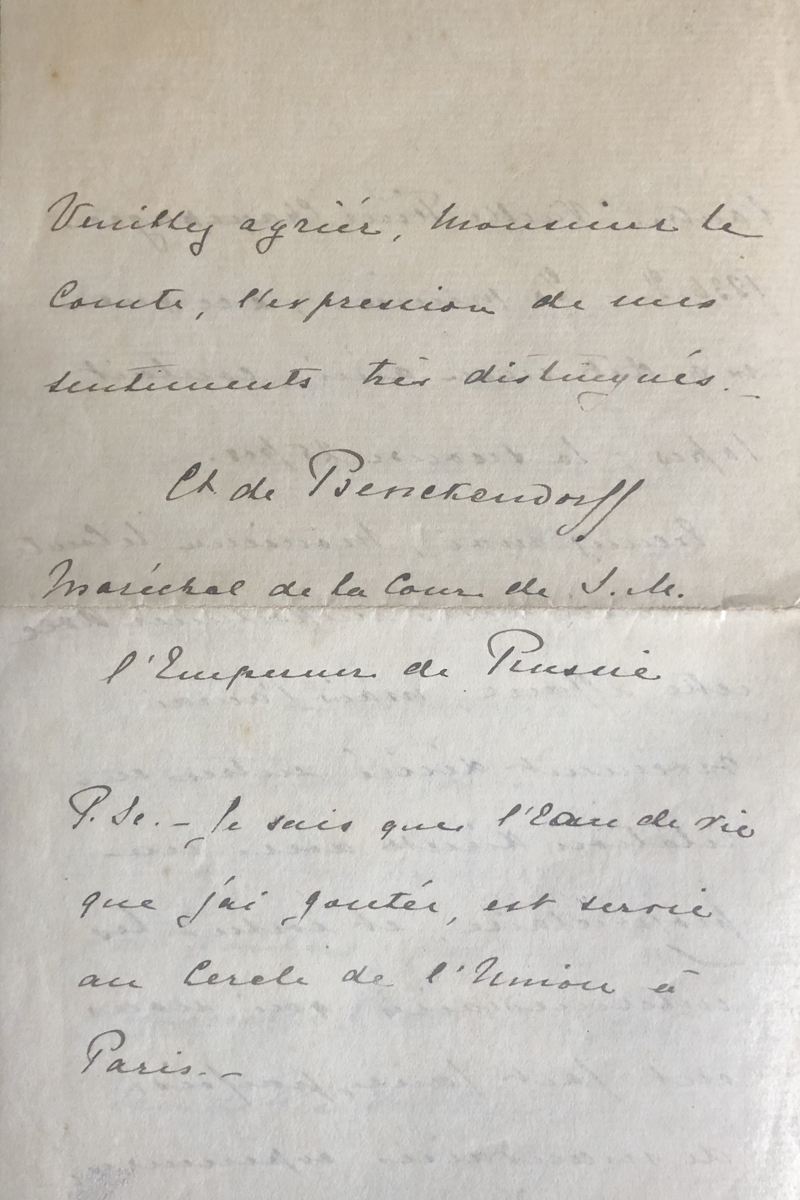 Veuillez agréér, Monsieur le
Comte, l'expression de mes
sentiments très distingués.
Ct. de Benckendorff
Maréchal de la Cour de S. M.
l'Empereur de Russie
P. Sc. – Je sais que l'Eau de vie
que j'ai goutée, est servie
au Cercle de l'Union à
Paris. –